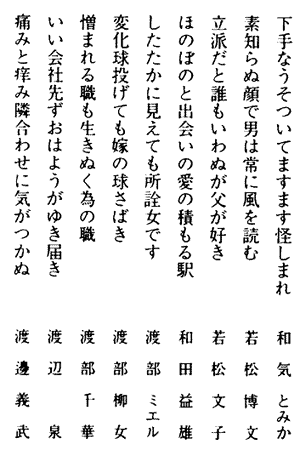 下手なうそついてますます怪しまれ 和気とみか
素知らぬ顔で男は常に風を読む 若松博文
立派だと誰もいわぬが父が好き 若松文子
ほのぼのと出会いの愛の積もる駅 和田益雄
したたかに見えても所詮女です 渡部ミエル
変化球投げても嫁の球さばき 渡部柳女
憎まれる職も生きぬく為の職 渡部千華
いい会社先ずおはようがゆき届き 渡辺泉
痛みと痒み隣合わせに気がつかぬ 渡邊義武